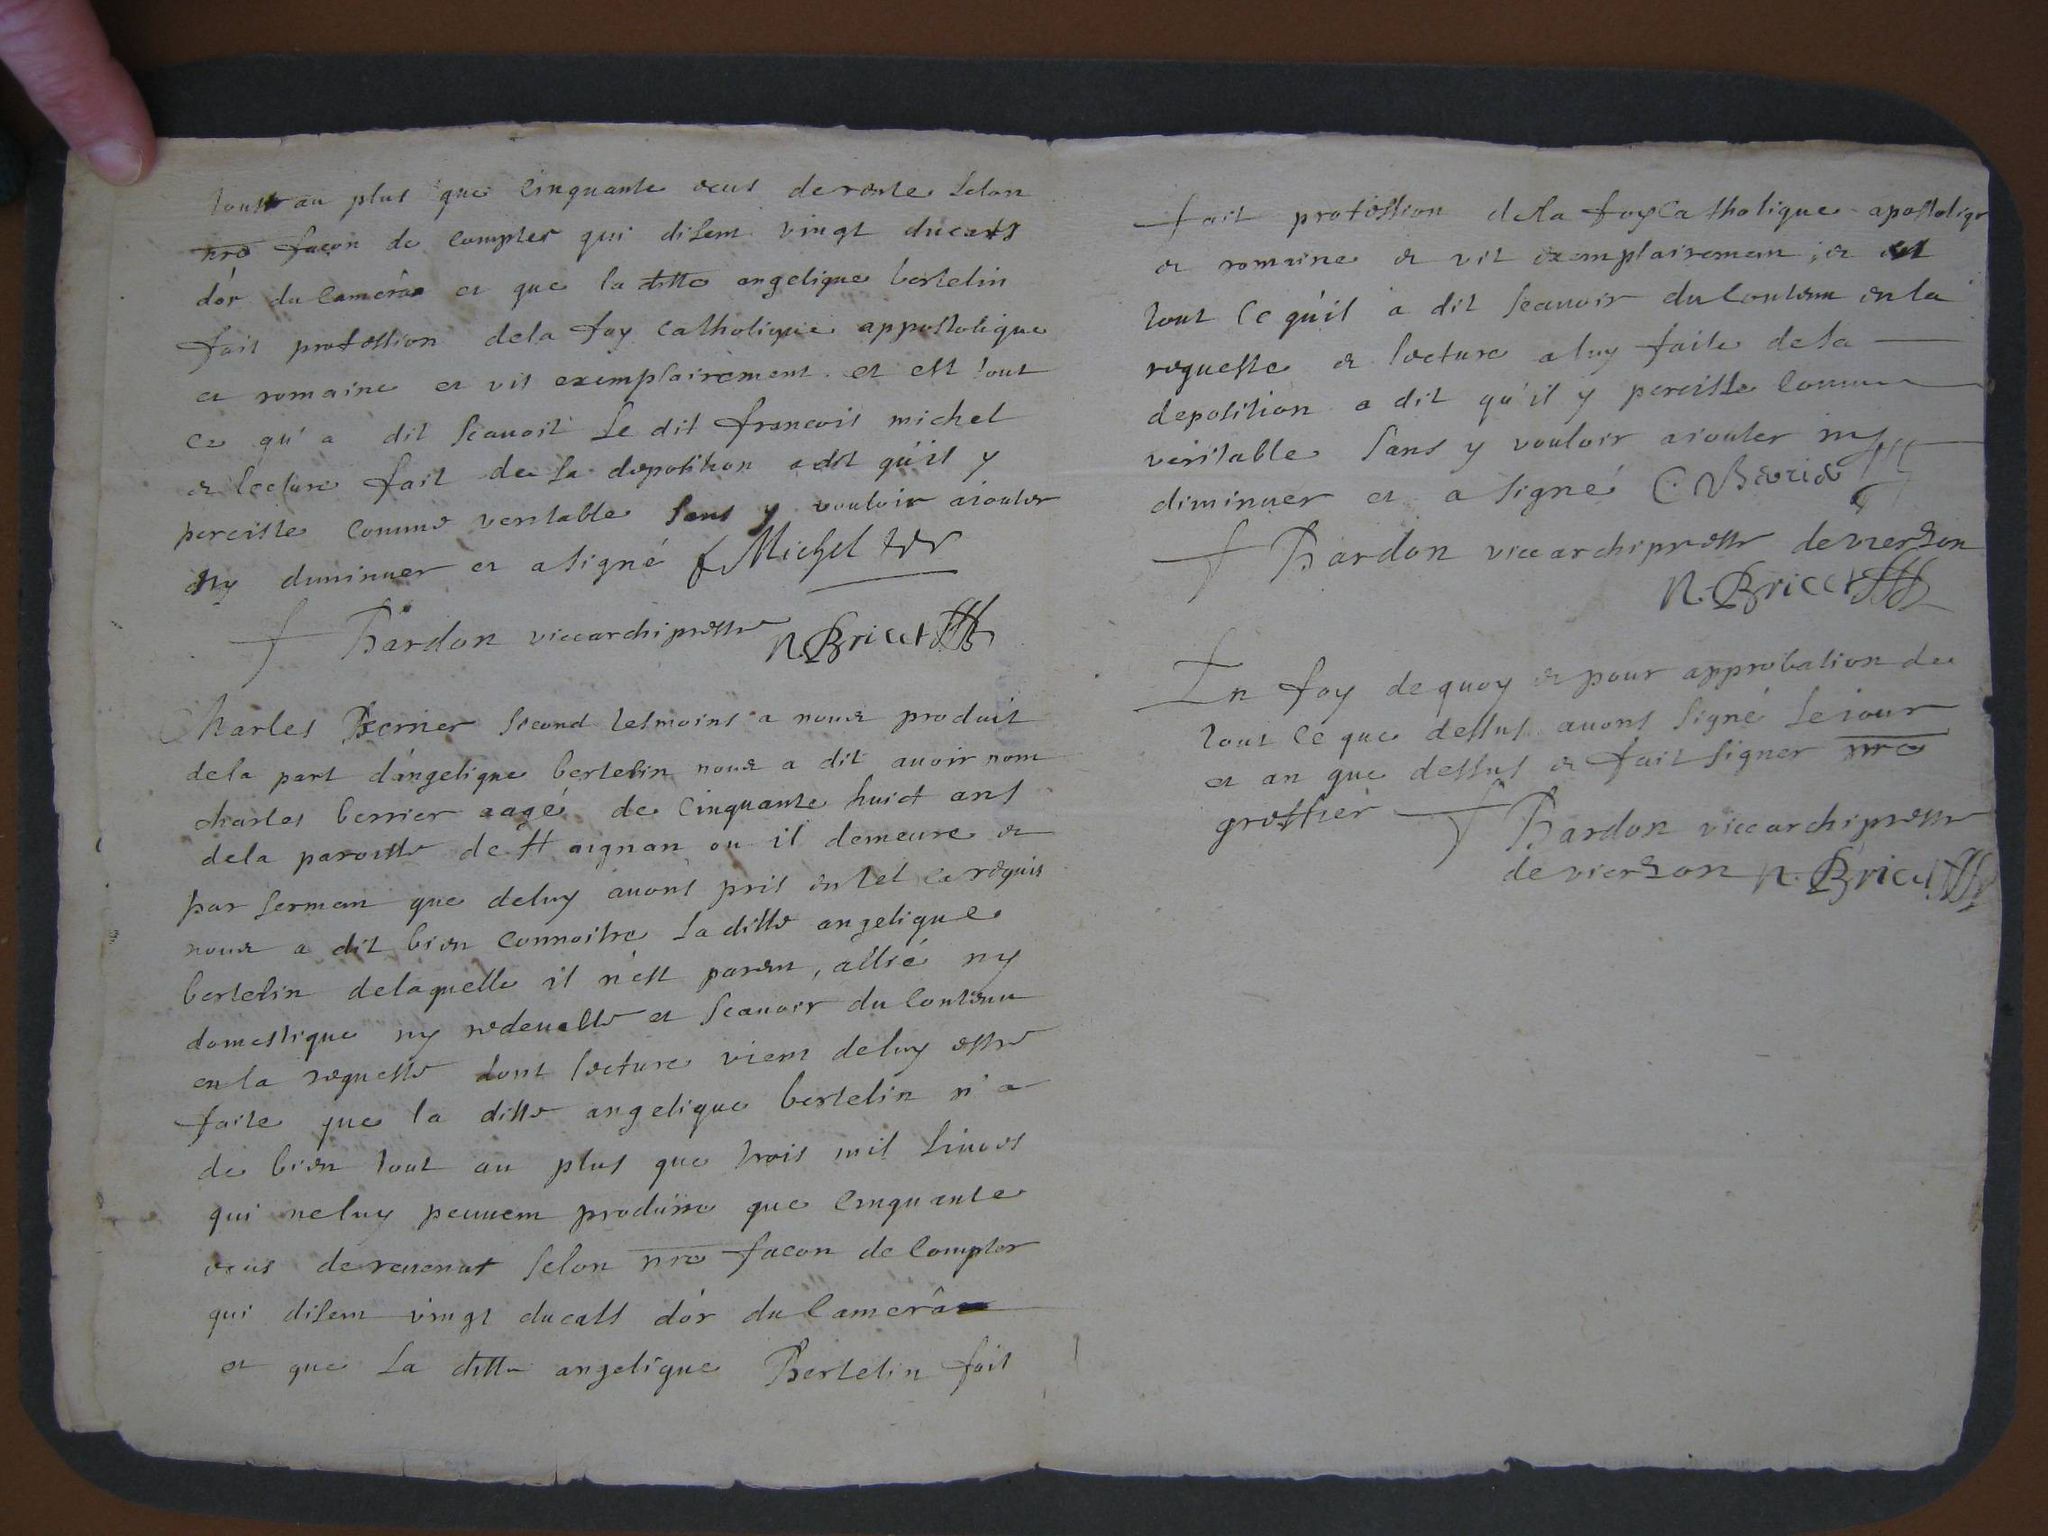 tout au plus que cinquante ecus de rente selon
nre facon de compter qui disent vingt ducats
d'or du camera et que la ditte angelique bertelin
fait profession dela foy catholique appostolique
et romaine et vit exemplairement et est tout
ce qu'a dit scauoit le dit francois michel
et lecture fait de sa deposition a dit qu'il y
perciste comme veritable sans y vouloir aiouter
ny diminuer et a signé f Michel
f Bardon vice archiprestre N. Bricet
Charles Berrier second tesmoins a nous produit
dela part d'angelique bertelin nous a dit auoir nom
charles berrier aagé de cinquante huict ans
dela paroisse de st aignan ou il demeure et
par sermen que deluy auons pris en tel ca requis
nous a dit bien connoitre la ditte angelique
bertelin delaquelle il n'est parent, allié ny
domestique ny redeuable et scauoir du contenu
en la requeste dont lecture vient deluy estre
faite que la ditte angelique bertelin n'a
de bien tout au plus que trois mil liures
qui neluy peuuem produire que cinquante
ecus de reuenus selon nre facon de compter
qui disem vingt ducats d'or du camera
et que la ditte angelique Bertelin fait
fait profession dela foy catholique apostolique
et romaine et vit exemplairemen, et est
tout ce qu'il a dit scauoir du contenu en la
requeste et lecture a luy faite de sa
deposition a dit qu'il y perciste comme
veritable sans y vouloir aiouter ny
diminuer et a signé C. Berier
f Bardon vice archiprestre de vierzon
N. Bricet
En foy de quoy et pour approbation de
tout ce que dessus auons signé le iour
et an que dessus et fait signer nre
greffier f Bardon vice archiprestre
de vierzon N. Bricet